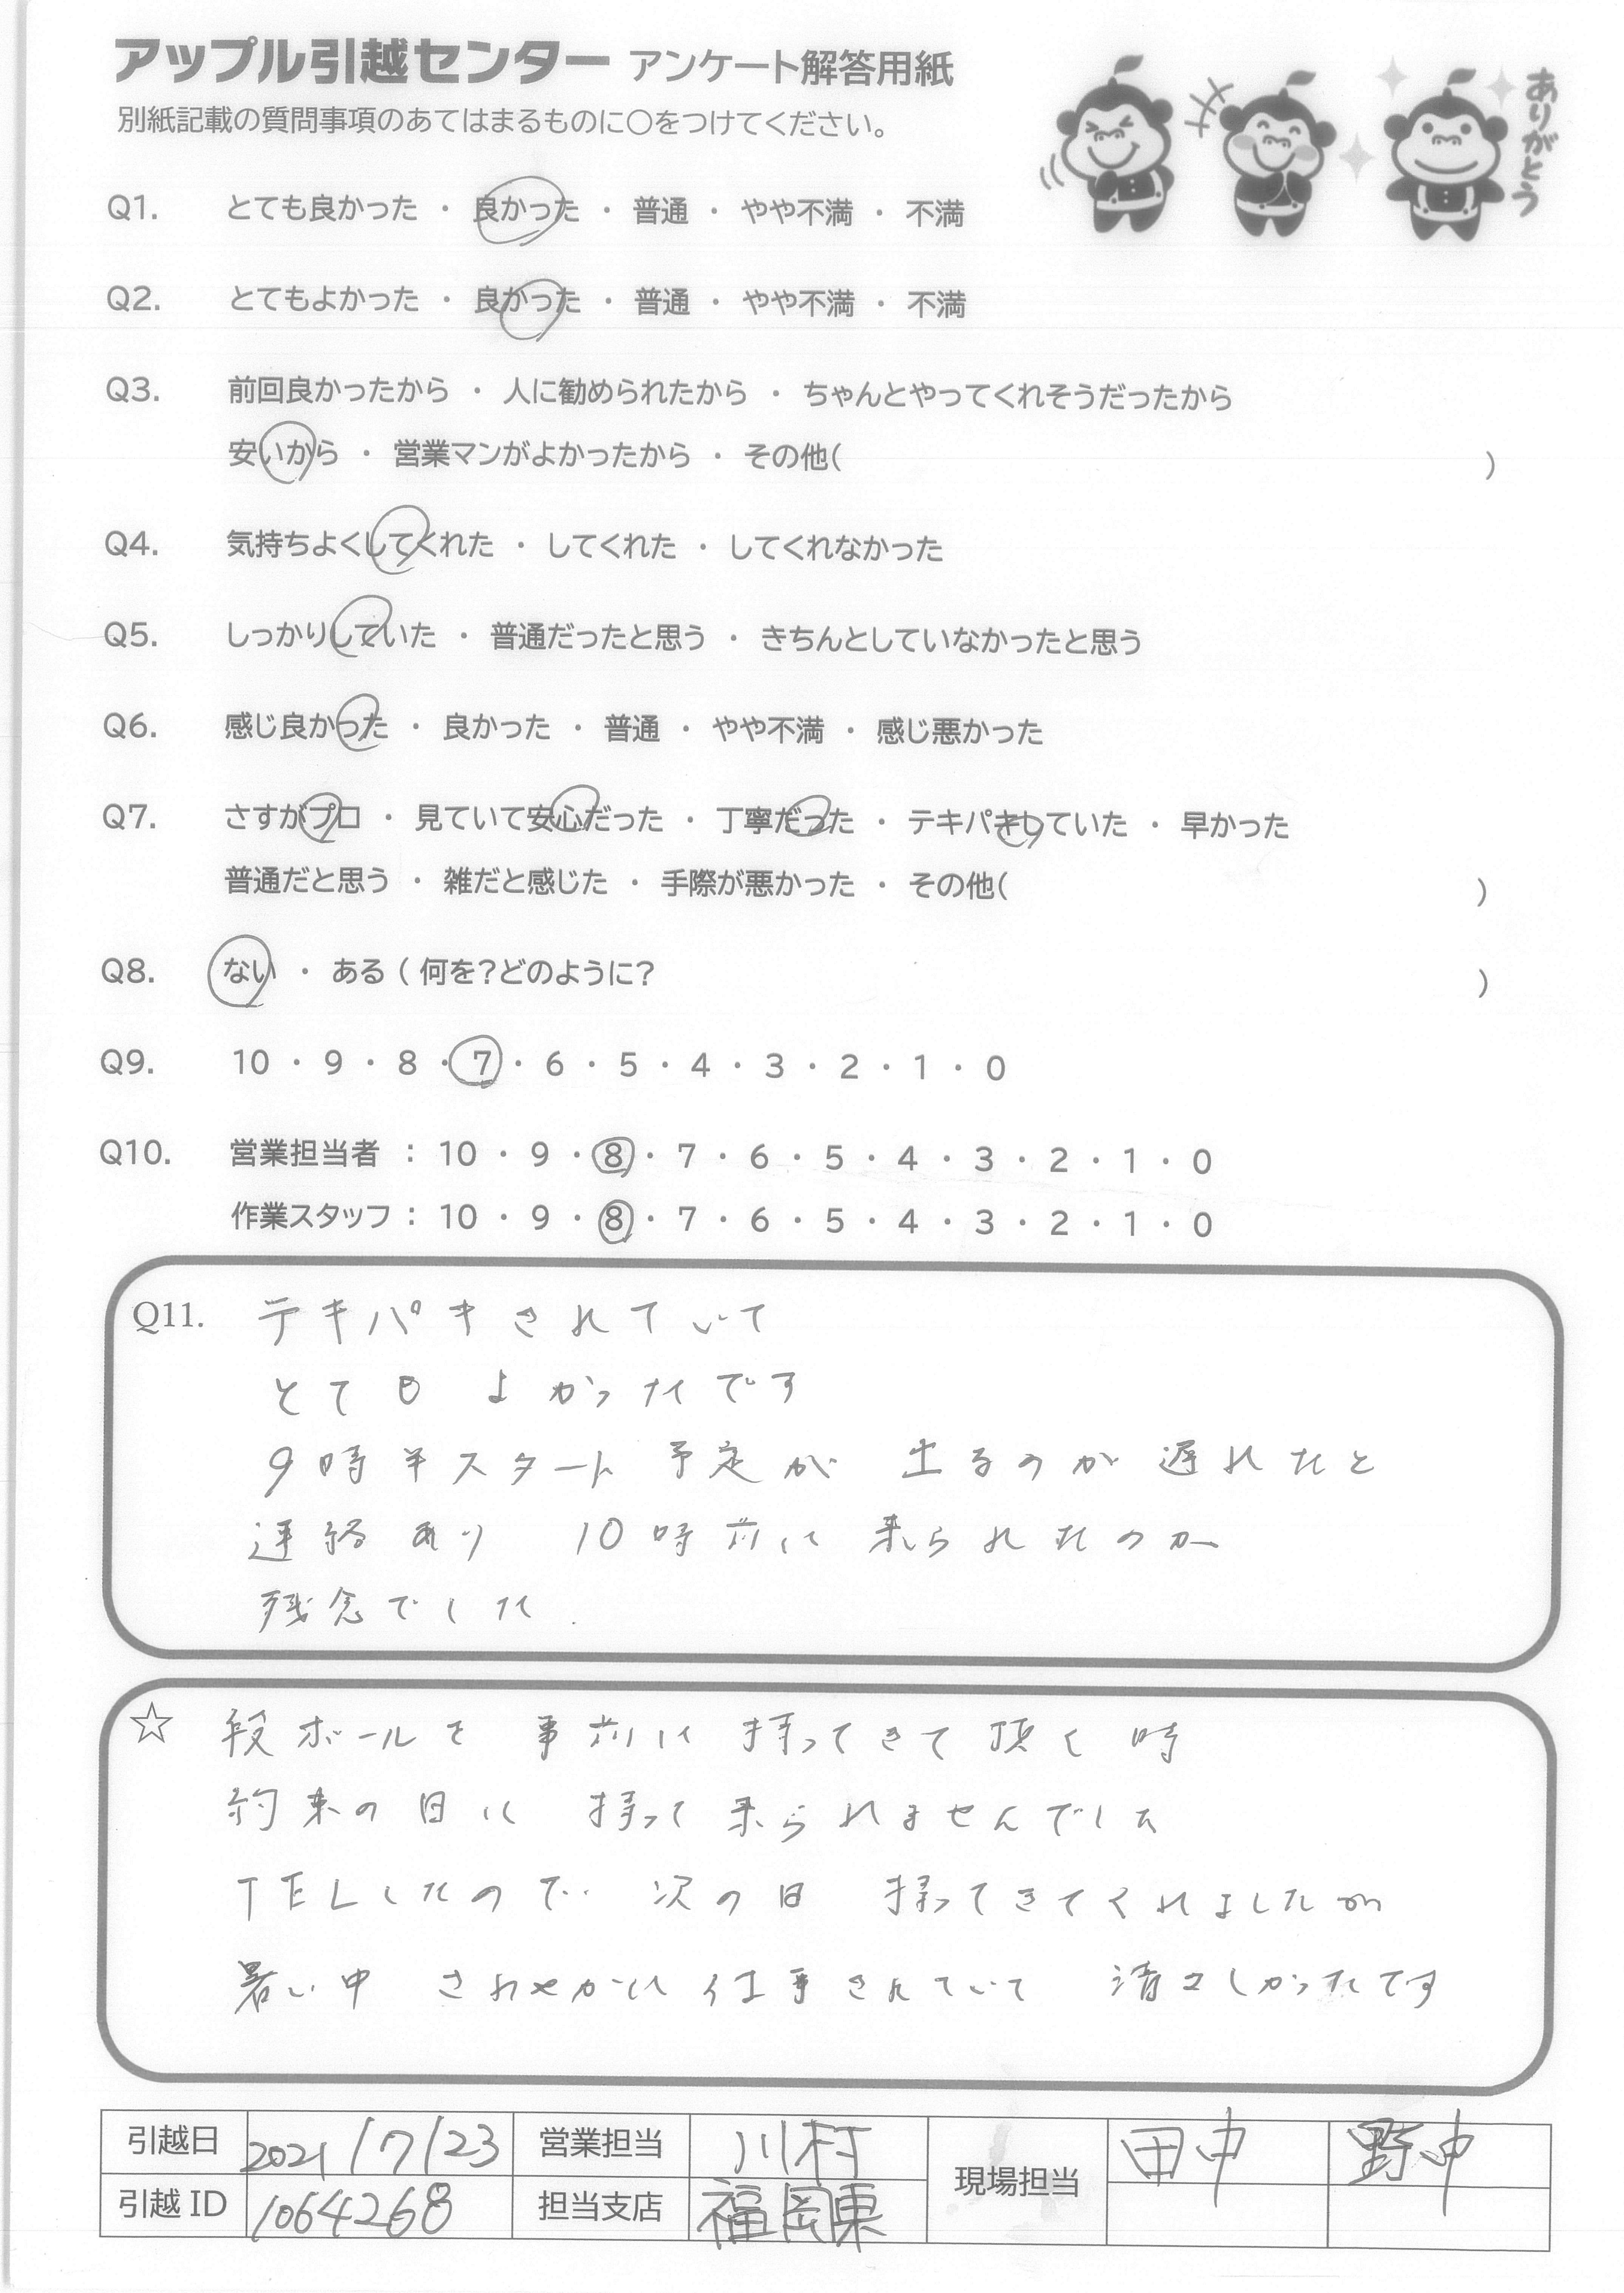 アップル引越センター アンケート解答用紙
別紙記載の質問事項のあてはまるものに○をつけてください。
ありがとう
Q1. とても良かった ・ 良かった ・ 普通 ・ やや不満 ・ 不満
Q2. とてもよかった ・ 良かった ・ 普通 ・ やや不満 ・ 不満
Q3. 前回良かったから ・ 人に勧められたから ・ ちゃんとやってくれそうだったから
安いから ・ 営業マンがよかったから ・ その他( )
Q4. 気持ちよくしてくれた ・ してくれた ・ してくれなかった
Q5. しっかりしていた ・ 普通だったと思う ・ きちんとしていなかったと思う
Q6. 感じ良かった ・ 良かった ・ 普通 ・ やや不満 ・ 感じ悪かった
Q7. さすがプロ ・ 見ていて安心だった ・ 丁寧だった ・ テキパキしていた ・ 早かった
普通だと思う ・ 雑だと感じた ・ 手際が悪かった ・ その他( )
Q8. ない ・ ある ( 何を?どのように? )
Q9. 10 ・ 9 ・ 8 ・ 7 ・ 6 ・ 5 ・ 4 ・ 3 ・ 2 ・ 1 ・ 0
Q10. 営業担当者 : 10 ・ 9 ・ 8 ・ 7 ・ 6 ・ 5 ・ 4 ・ 3 ・ 2 ・ 1 ・ 0
作業スタッフ : 10 ・ 9 ・ 8 ・ 7 ・ 6 ・ 5 ・ 4 ・ 3 ・ 2 ・ 1 ・ 0
Q11. テキパキされていて
とても よかったです
9時半スタート 予定が 出るのが遅れたと
連絡あり 10時前に 来られたのが
残念でした.
☆ 段ボールを 事前に 持ってきて頂く時
約束の日に 持って来られませんでした
TELしたので 次の日 持ってきてくれましたが
暑い中 さわやかに 仕事されていて 清々しかったです
引越日 2021/7/23 営業担当 川村 現場担当 田中 野中
引越 ID 1064268 担当支店 福岡東